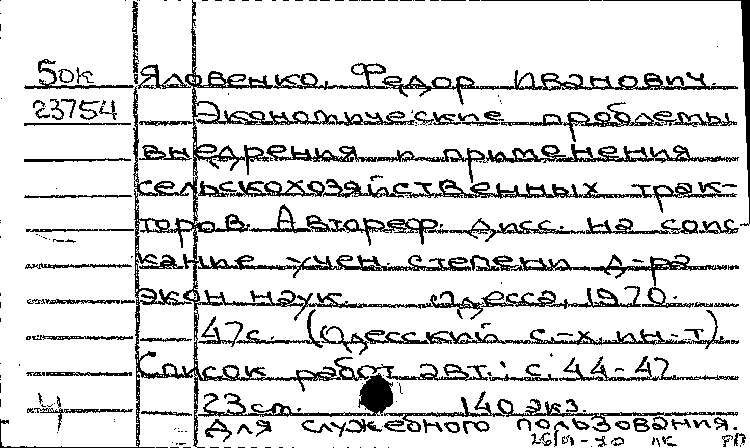 50к Яловенко, Федор Иванович.
23754 Экономические проблемы
внедрения и применения
сельскохозяйственных трак-
торов. Автореф. дисс. на соис-
кание учен. степени д-ра
экон. наук. Одесса, 1970.
47с. (Одесский с.-х. ин-т).
Список работ авт.: с. 44-47.
Ч 23 cm. 140 экз.
Для служебного пользования.